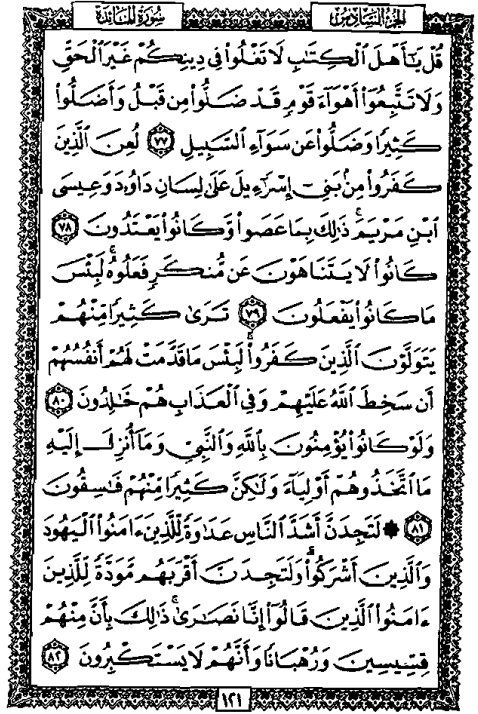 الجزء السادس سورة المائدة
قُلْ يَٰٓأَهْلَ ٱلْكِتَٰبِ لَا تَغْلُوا۟ فِى دِينِكُمْ غَيْرَ ٱلْحَقِّ
وَلَا تَتَّبِعُوٓا۟ أَهْوَآءَ قَوْمٍ قَدْ ضَلُّوا۟ مِن قَبْلُ وَأَضَلُّوا۟
كَثِيرًا وَضَلُّوا۟ عَن سَوَآءِ ٱلسَّبِيلِ ٧٧ لُعِنَ ٱلَّذِينَ
كَفَرُوا۟ مِنۢ بَنِىٓ إِسْرَٰٓءِيلَ عَلَىٰ لِسَانِ دَاوُۥدَ وَعِيسَى
ٱبْنِ مَرْيَمَ ۚ ذَٰلِكَ بِمَا عَصَوا۟ وَّكَانُوا۟ يَعْتَدُونَ ٧٨
كَانُوا۟ لَا يَتَنَاهَوْنَ عَن مُّنكَرٍ فَعَلُوهُ ۚ لَبِئْسَ
مَا كَانُوا۟ يَفْعَلُونَ ٧٩ تَرَىٰ كَثِيرًا مِّنْهُمْ
يَتَوَلَّوْنَ ٱلَّذِينَ كَفَرُوا۟ ۚ لَبِئْسَ مَا قَدَّمَتْ لَهُمْ أَنفُسُهُمْ
أَن سَخِطَ ٱللَّهُ عَلَيْهِمْ وَفِى ٱلْعَذَابِ هُمْ خَٰلِدُونَ ٨٠
وَلَوْ كَانُوا۟ يُؤْمِنُونَ بِٱللَّهِ وَٱلنَّبِىِّ وَمَآ أُنزِلَ إِلَيْهِ
مَا ٱتَّخَذُوهُمْ أَوْلِيَآءَ وَلَٰكِنَّ كَثِيرًا مِّنْهُمْ فَٰسِقُونَ
٨١ ۞ لَتَجِدَنَّ أَشَدَّ ٱلنَّاسِ عَدَٰوَةً لِّلَّذِينَ ءَامَنُوا۟ ٱلْيَهُودَ
وَٱلَّذِينَ أَشْرَكُوا۟ ۖ وَلَتَجِدَنَّ أَقْرَبَهُم مَّوَدَّةً لِّلَّذِينَ
ءَامَنُوا۟ ٱلَّذِينَ قَالُوٓا۟ إِنَّا نَصَٰرَىٰ ۚ ذَٰلِكَ بِأَنَّ مِنْهُمْ
قِسِّيسِينَ وَرُهْبَانًا وَأَنَّهُمْ لَا يَسْتَكْبِرُونَ ٨٢
١٢١